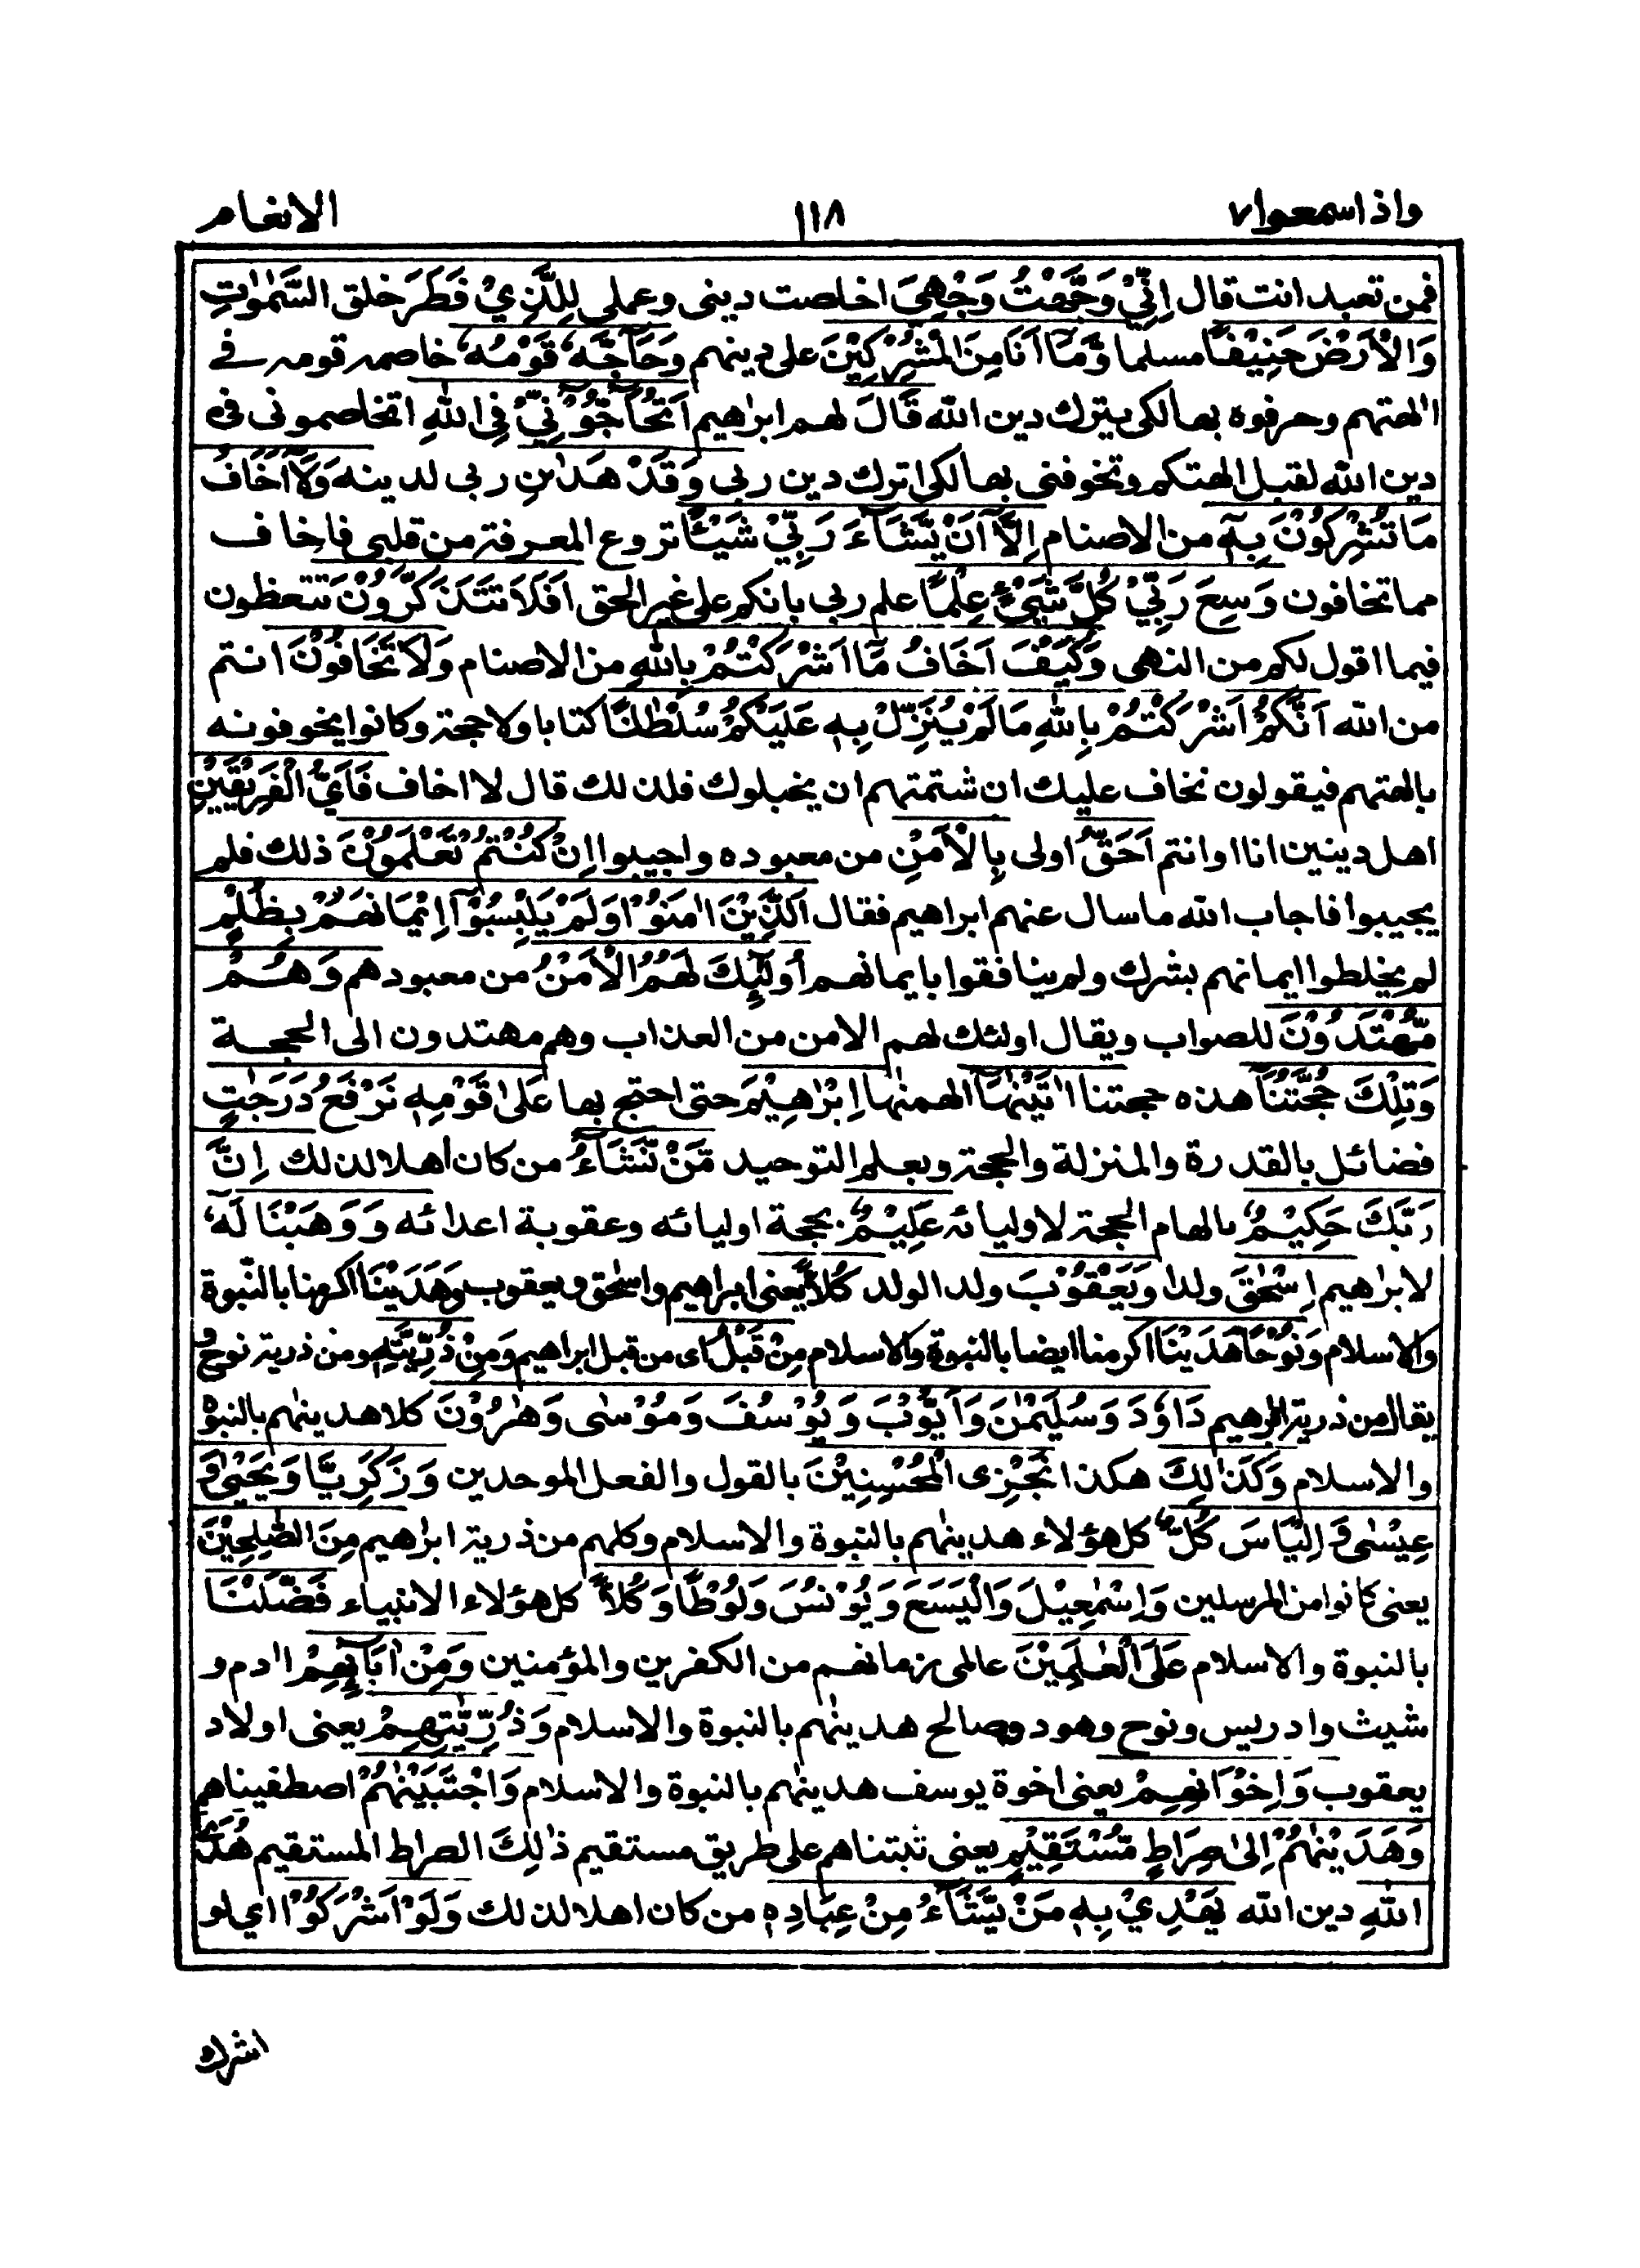 واذاسمعوا٧
١١٨
الانعام
فمن تعبد انت قال اِنِّيْ وَجَّهْتُ وَجْهِيَ اخلصت دينى وعملى لِلَّذِيْ فَطَرَ خلق السَّمٰوٰتِ
وَالْاَرْضَ حَنِيْفًا مسلما وَّمَآ اَنَا مِنَ الْمُشْرِكِيْنَ على دينهم وَحَآجَّهٗ قَوْمُهٗ خاصمه قومه فے
الهتهم وحرفوه بها لكى يترك دين الله قَالَ لهم ابرٰهيم اَتُحَآجُّوْٓنِّيْ فِي اللّٰهِ اتخاصمونى فى
دين الله لقبل الهتكم وتخوفنى بها لكى اترك دين ربى وَقَدْ هَدٰىنِ ربى لدينه وَلَآ اَخَافُ
مَا تُشْرِكُوْنَ بِهٖٓ من الاصنام اِلَّآ اَنْ يَّشَآءَ رَبِّيْ شَيْـًٔا تروع المعرفة من قلبى فاخاف
مما تخافون وَسِعَ رَبِّيْ كُلَّ شَيْءٍ عِلْمًا علم ربى بانكم على غير الحق اَفَلَا تَتَذَكَّرُوْنَ تتعظون
فيما اقول لكم من النهى وَكَيْفَ اَخَافُ مَآ اَشْرَكْتُمْ بالله من الاصنام وَلَا تَخَافُوْنَ انتم
من الله اَنَّكُمْ اَشْرَكْتُمْ بِاللّٰهِ مَا لَمْ يُنَزِّلْ بِهٖ عَلَيْكُمْ سُلْطٰنًا كتابا ولا حجة وكانوا يخوفونه
بالهتهم فيقولون نخاف عليك ان شتمتهم ان يخبلوك فلذلك قال لا اخاف فَاَيُّ الْفَرِيْقَيْنِ
اهل دينين انا او انتم اَحَقُّ اولى بِالْاَمْنِ من معبوده واجيبوا اِنْ كُنْتُمْ تَعْلَمُوْنَ ذلك فلم
يجيبوا فاجاب الله ما سال عنهم ابراهيم فقال اَلَّذِيْنَ اٰمَنُوْا وَلَمْ يَلْبِسُوْٓا اِيْمَانَهُمْ بِظُلْمٍ
لم يخلطوا ايمانهم بشرك ولم ينافقوا بايمانهم اُولٰٓئِكَ لَهُمُ الْاَمْنُ من معبودهم وَهُمْ
مُّهْتَدُوْنَ للصواب ويقال اولئك لهم الامن من العذاب وهم مهتدون الى الحجة
وَتِلْكَ حُجَّتُنَآ هذه حجتنا اٰتَيْنٰهَآ الهمنٰها اِبْرٰهِيْمَ حتى احتج بها عَلٰى قَوْمِهٖ نَرْفَعُ دَرَجٰتٍ
فضائل بالقدرة والمنزلة والحجة وبعلم التوحيد مَّنْ نَّشَآءُ من كان اهلا لذلك اِنَّ
رَبَّكَ حَكِيْمٌ بالهام الحجة لاوليائه عَلِيْمٌ بحجة اوليائه وعقوبة اعدائه وَوَهَبْنَا لَهٗٓ
لابرٰهيم اِسْحٰقَ ولدا وَيَعْقُوْبَ ولد الولد كُلًّا يعنى ابراهيم واسحٰق ويعقوب وَهَدَيْنَا اكرمنا بالنبوة
والاسلام وَنُوْحًا هَدَيْنَا اكرمنا ايضا بالنبوة والاسلام مِنْ قَبْلُ اى من قبل ابراهيم وَمِنْ ذُرِّيَّتِهٖ ومن ذرية نوح و
يقال من ذرية ابرٰهيم دَاوٗدَ وَسُلَيْمٰنَ وَاَيُّوْبَ وَيُوْسُفَ وَمُوْسٰى وَهٰرُوْنَ كلا هدينٰهم بالنبوة
والاسلام وَكَذٰلِكَ هكذا نَجْزِى الْمُحْسِنِيْنَ بالقول والفعل الموحدين وَزَكَرِيَّا وَيَحْيٰى وَ
عِيْسٰى وَاِلْيَاسَ كُلٌّ كل هؤلاء هدينٰهم بالنبوة والاسلام وكلهم من ذرية ابرٰهيم مِنَ الصّٰلِحِيْنَ
يعنى كانوا من المرسلين وَاِسْمٰعِيْلَ وَالْيَسَعَ وَيُوْنُسَ وَلُوْطًا وَكُلًّا كل هؤلاء الانبياء فَضَّلْنَا
بالنبوة والاسلام عَلَى الْعٰلَمِيْنَ عالمى زمانهم من الكٰفرين والمؤمنين وَمِنْ اٰبَآئِهِمْ اٰدم و
شيث وادريس ونوح وهود وصالح هدينٰهم بالنبوة والاسلام وَذُرِّيّٰتِهِمْ يعنى اولاد
يعقوب وَاِخْوَانِهِمْ يعنى اخوة يوسف هدينٰهم بالنبوة والاسلام وَاجْتَبَيْنٰهُمْ اصطفيناهم
وَهَدَيْنٰهُمْ اِلٰى صِرَاطٍ مُّسْتَقِيْمٍ يعنى ثبتناهم على طريق مستقيم ذٰلِكَ الصراط المستقيم هُدَى
اللّٰهِ دين الله يَهْدِيْ بِهٖ مَنْ يَّشَآءُ مِنْ عِبَادِهٖ من كان اهلا لذلك وَلَوْ اَشْرَكُوْا اي لو
اشرك